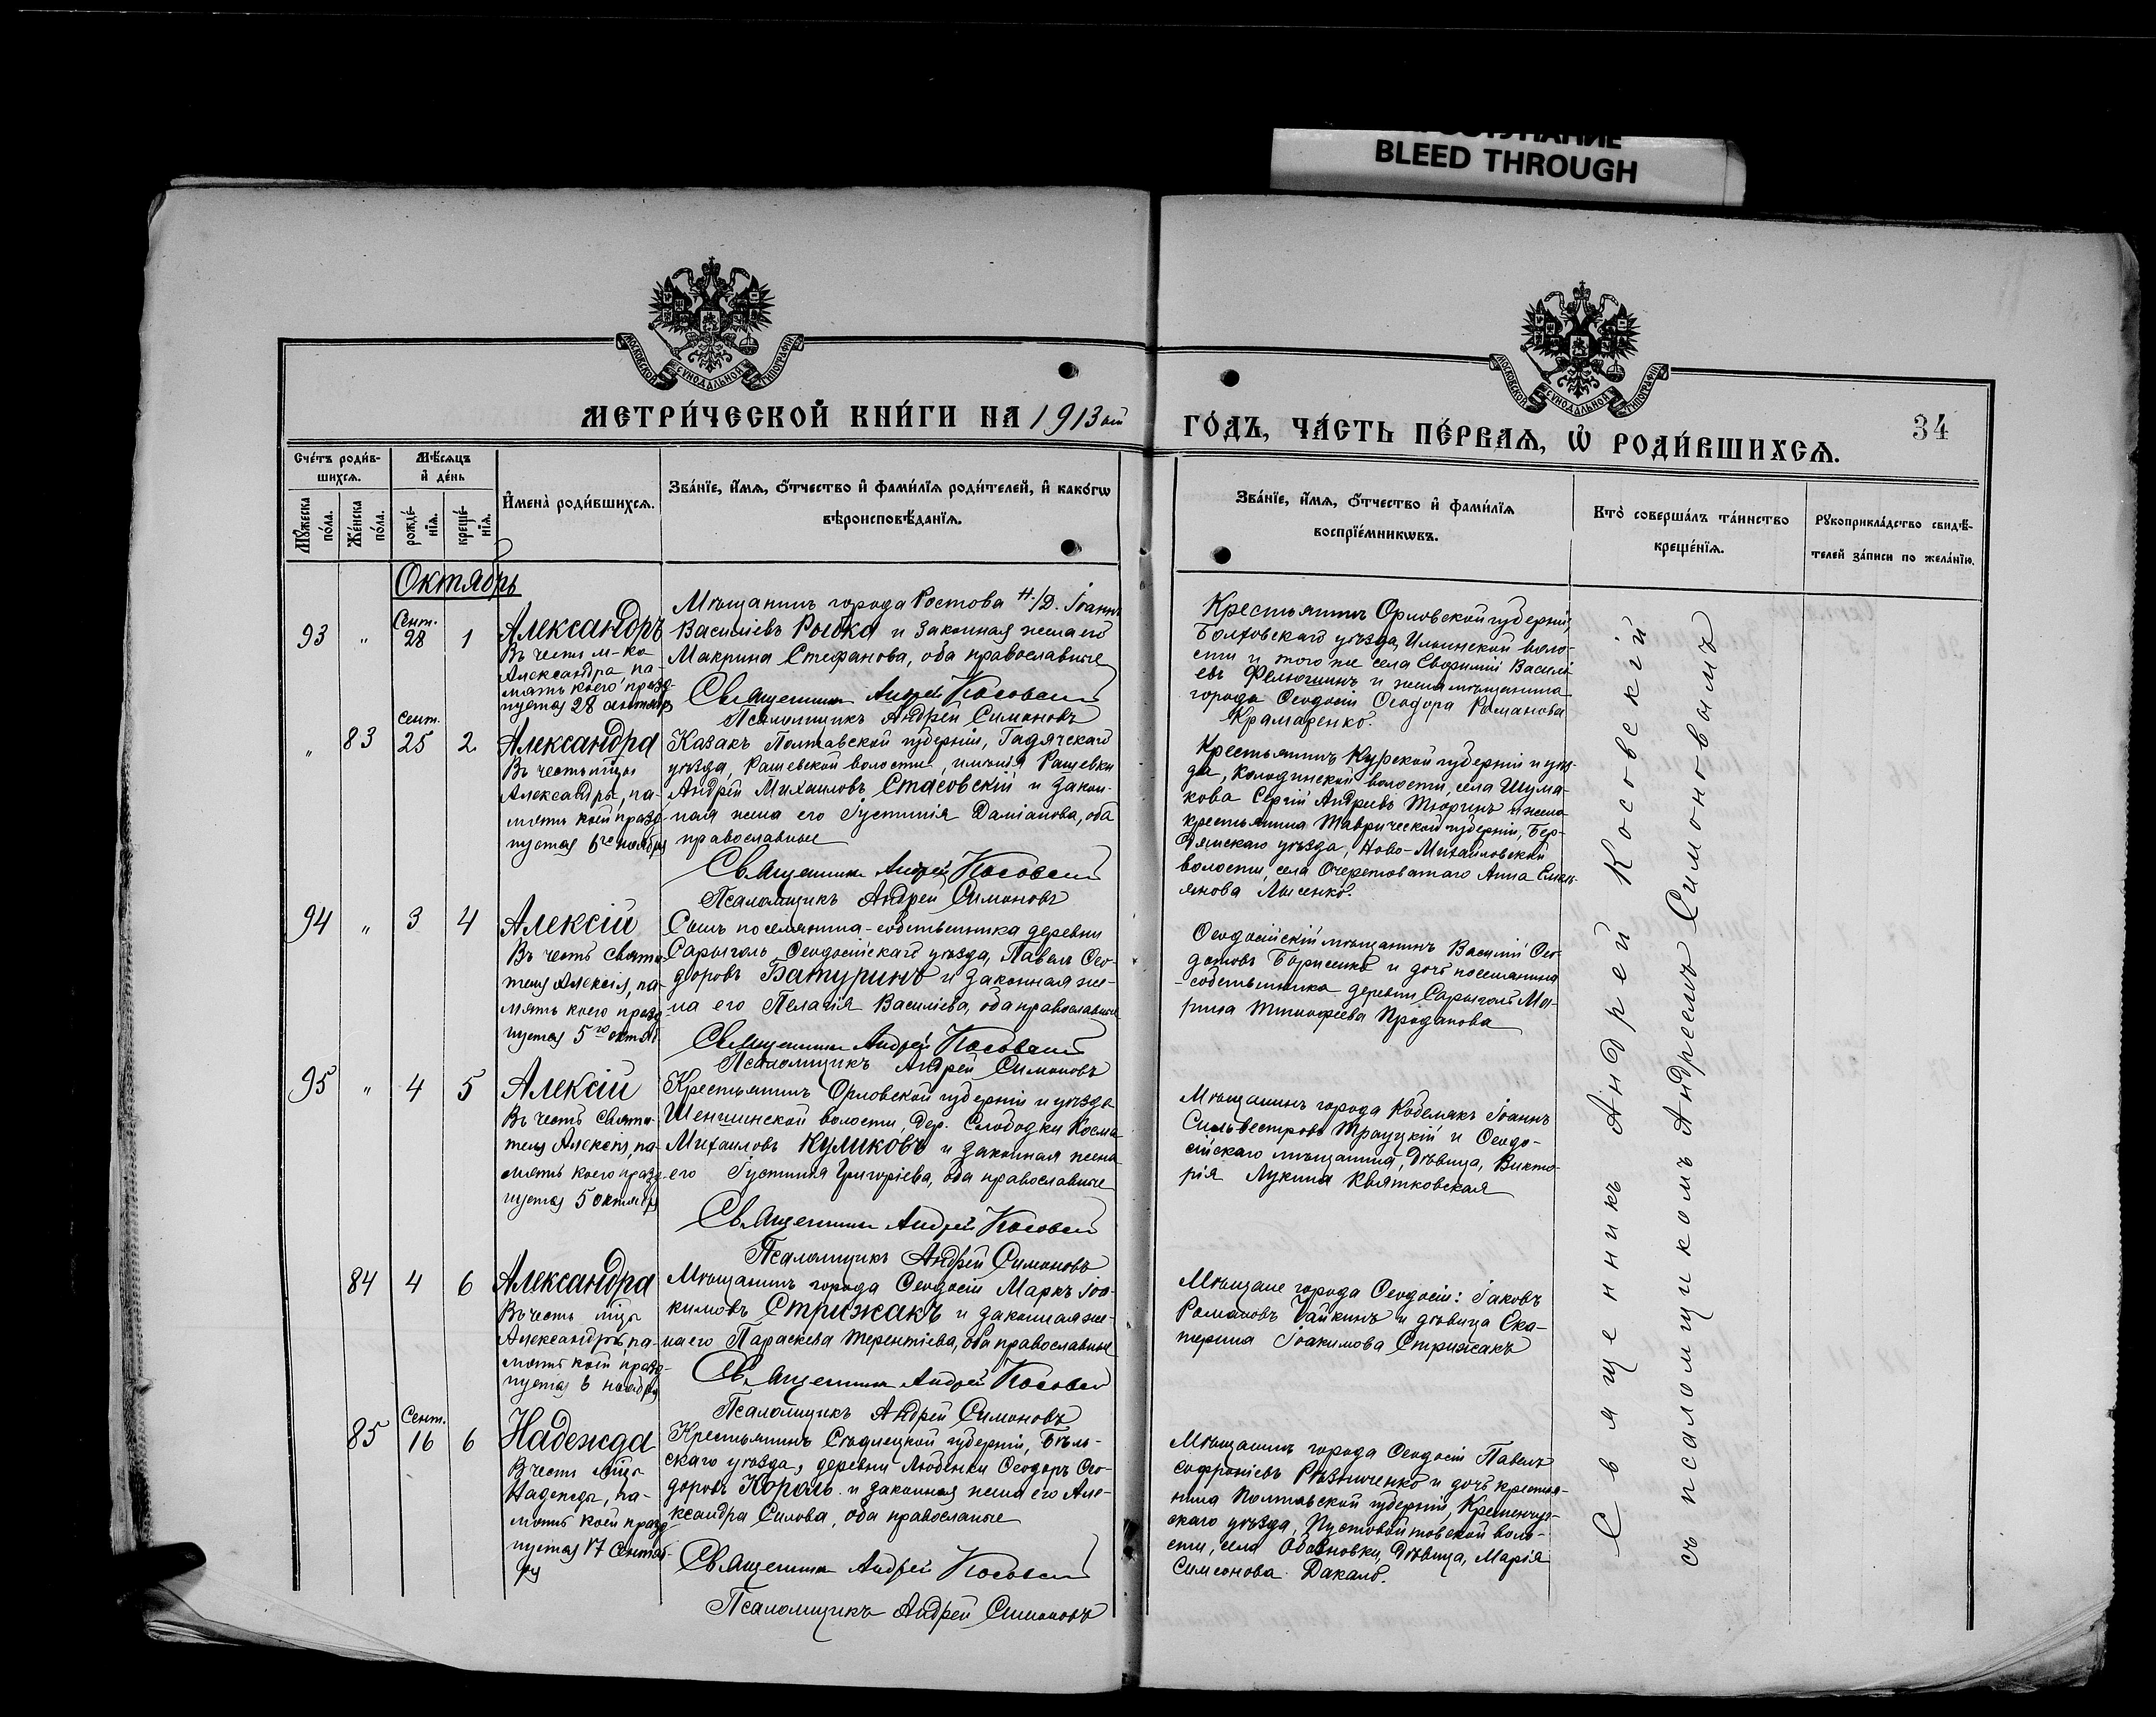 BLEED THROUGH
МОСКОВСКОЙ СѴНОДАЛЬНОЙ ТИПОГРАФІИ
МОСКОВСКОЙ СѴНОДАЛЬНОЙ ТИПОГРАФІИ
МЕТРИ́ЧЕСКОЙ КНИ́ГИ НА 1913 ый
ГО́ДЪ, ЧА́СТЬ ПЕ́РВАѦ, Ѽ РОДИ́ВШИХСѦ.
34
Сче́тъ роди́в-
шихсѧ.
Мꙋ́жеска по́ла.
Же́нска по́ла.
Мѣ́сѧцъ
и҆ де́нь
рожде́-нїѧ.
креще́-нїѧ.
И҆мена̀ роди́вшихсѧ.
Зва́нїе, и҆́мѧ, ѻ҆́тчество и҆ фами́лїѧ роди́телей, и҆ како́гѡ
вѣроисповѣ́данїѧ.
Зва́нїе, и҆́мѧ, ѻ҆́тчество и҆ фами́лїѧ
воспрїе́мникѡвъ.
Кто̀ соверша́лъ та́инство
креще́нїѧ.
Рꙋкоприкла́дство свидѣ́-
телей за́писи по жела́нїю.
Октябрь
93 " Сент. 28 1
Александръ
Въ честь м-ка
Александра, па-
мять коего празд-
нуется 28 сентябр
Мѣщанинъ города Ростова н./Д. Іоаннъ
Василіевъ Рыбка и законная жена его
Макрина Стефанова, оба православные
Священникъ Андрей Косовскій
Псаломщикъ Андрей Симоновъ
Крестьянинъ Орловской губерніи,
Болховскаго уѣзда, Ильинской воло-
сти и того же села Евфимій Василі-
евъ Фелюшинъ и жена мѣщанина
города Ѳеодосіи Ѳеодора Романова
Крамаренко.
" 83 Сент. 25 2
Александра
Въ честь м-цы
Александры, па-
мять коей празд-
нуется 6го ноября
Казакъ Полтавской губерніи, Гадячскаго
уѣзда, Рашевской волости, имѣнія Рашевки
Андрей Михаиловъ Стасовскій и закон-
ная жена его Іустинія Даміанова, оба
православные
Священникъ Андрей Косовскій
Псаломщикъ Андрей Симоновъ
Крестьянинъ Курской губерніи и уѣз-
да, Колодинской волости, села Шума-
кова Сергій Андреевъ Тюринъ и жена
крестьянина Таврической губерніи, Бер-
дянскаго уѣзда, Ново-Михайловской
волости, села Очеретоватаго Анна Емель-
янова Лысенко.
94 " 3 4
Алексій
Въ честь святи-
теля Алексія, па-
мять коего празд-
нуется 5го октяб
Сынъ поселянина-собственника деревни
Сарыголь Ѳеодосійскаго уѣзда, Павелъ Ѳео-
доровъ Батуринъ и законная же-
на его Пелагія Василіева, оба православные
Священникъ Андрей Косовскій
Псаломщикъ Андрей Симоновъ
Ѳеодосійскій мѣщанинъ Василій Ѳео-
дотовъ Борисенко и дочь поселянина
-собственника деревни Сарыголь Ма-
рина Тимофеева Проданова
95 " 4 5
Алексій
Въ честь святи-
теля Алексія, па-
мять коего празд-
нуется 5 октября
Крестьянинъ Орловской губерніи и уѣзда
Шеншинской волости, дер. Слободки Косма
Михаиловъ Куликовъ и законная жена
его Іустинія Григоріева, оба православные
Священникъ Андрей Косовскій
Псаломщикъ Андрей Симоновъ
Мѣщанинъ города Кобелякъ Іоаннъ
Сильвестровъ Трауцкій и Ѳеодо-
сійскаго мѣщанина, дѣвица, Викто-
рія Лукина Квятковская
84 4 6
Александра
Въ честь м-цы
Александры, па-
мять коей празд-
нуется 6 ноября
Мѣщанинъ города Ѳеодосіи Маркъ Іоа-
кимовъ Стрижакъ и законная же-
на его Параскева Терентіева, оба православные
Священникъ Андрей Косовскій
Псаломщикъ Андрей Симоновъ
Мѣщане города Ѳеодосіи: Іаковъ
Романовъ Чайкинъ и дѣвица Ека-
терина Іоакимова Стрижакъ
85 Сент. 16 6
Надежда
Въ честь м-цы
Надежды, па-
мять коей празд-
нуется 17 Сентяб-
ря
Крестьянинъ Сѣдлецкой губерніи, Бѣль-
скаго уѣзда, деревни Любенки Ѳеодоръ Ѳео-
доровъ Король и законная жена его Але-
ксандра Силова, оба православные
Священникъ Андрей Косовскій
Псаломщикъ Андрей Симоновъ
Мѣщанинъ города Ѳеодосіи Павелъ
Софроніевъ Рѣзниченко и дочь крестья-
нина Полтавской губерніи, Кременчуг-
скаго уѣзда, Пустовойтовской воло-
сти, села Обазновки, дѣвица, Марія
Симеонова Дакалъ.
Священникъ Андрей Косовскій
съ псаломщикомъ Андреемъ Симоновымъ